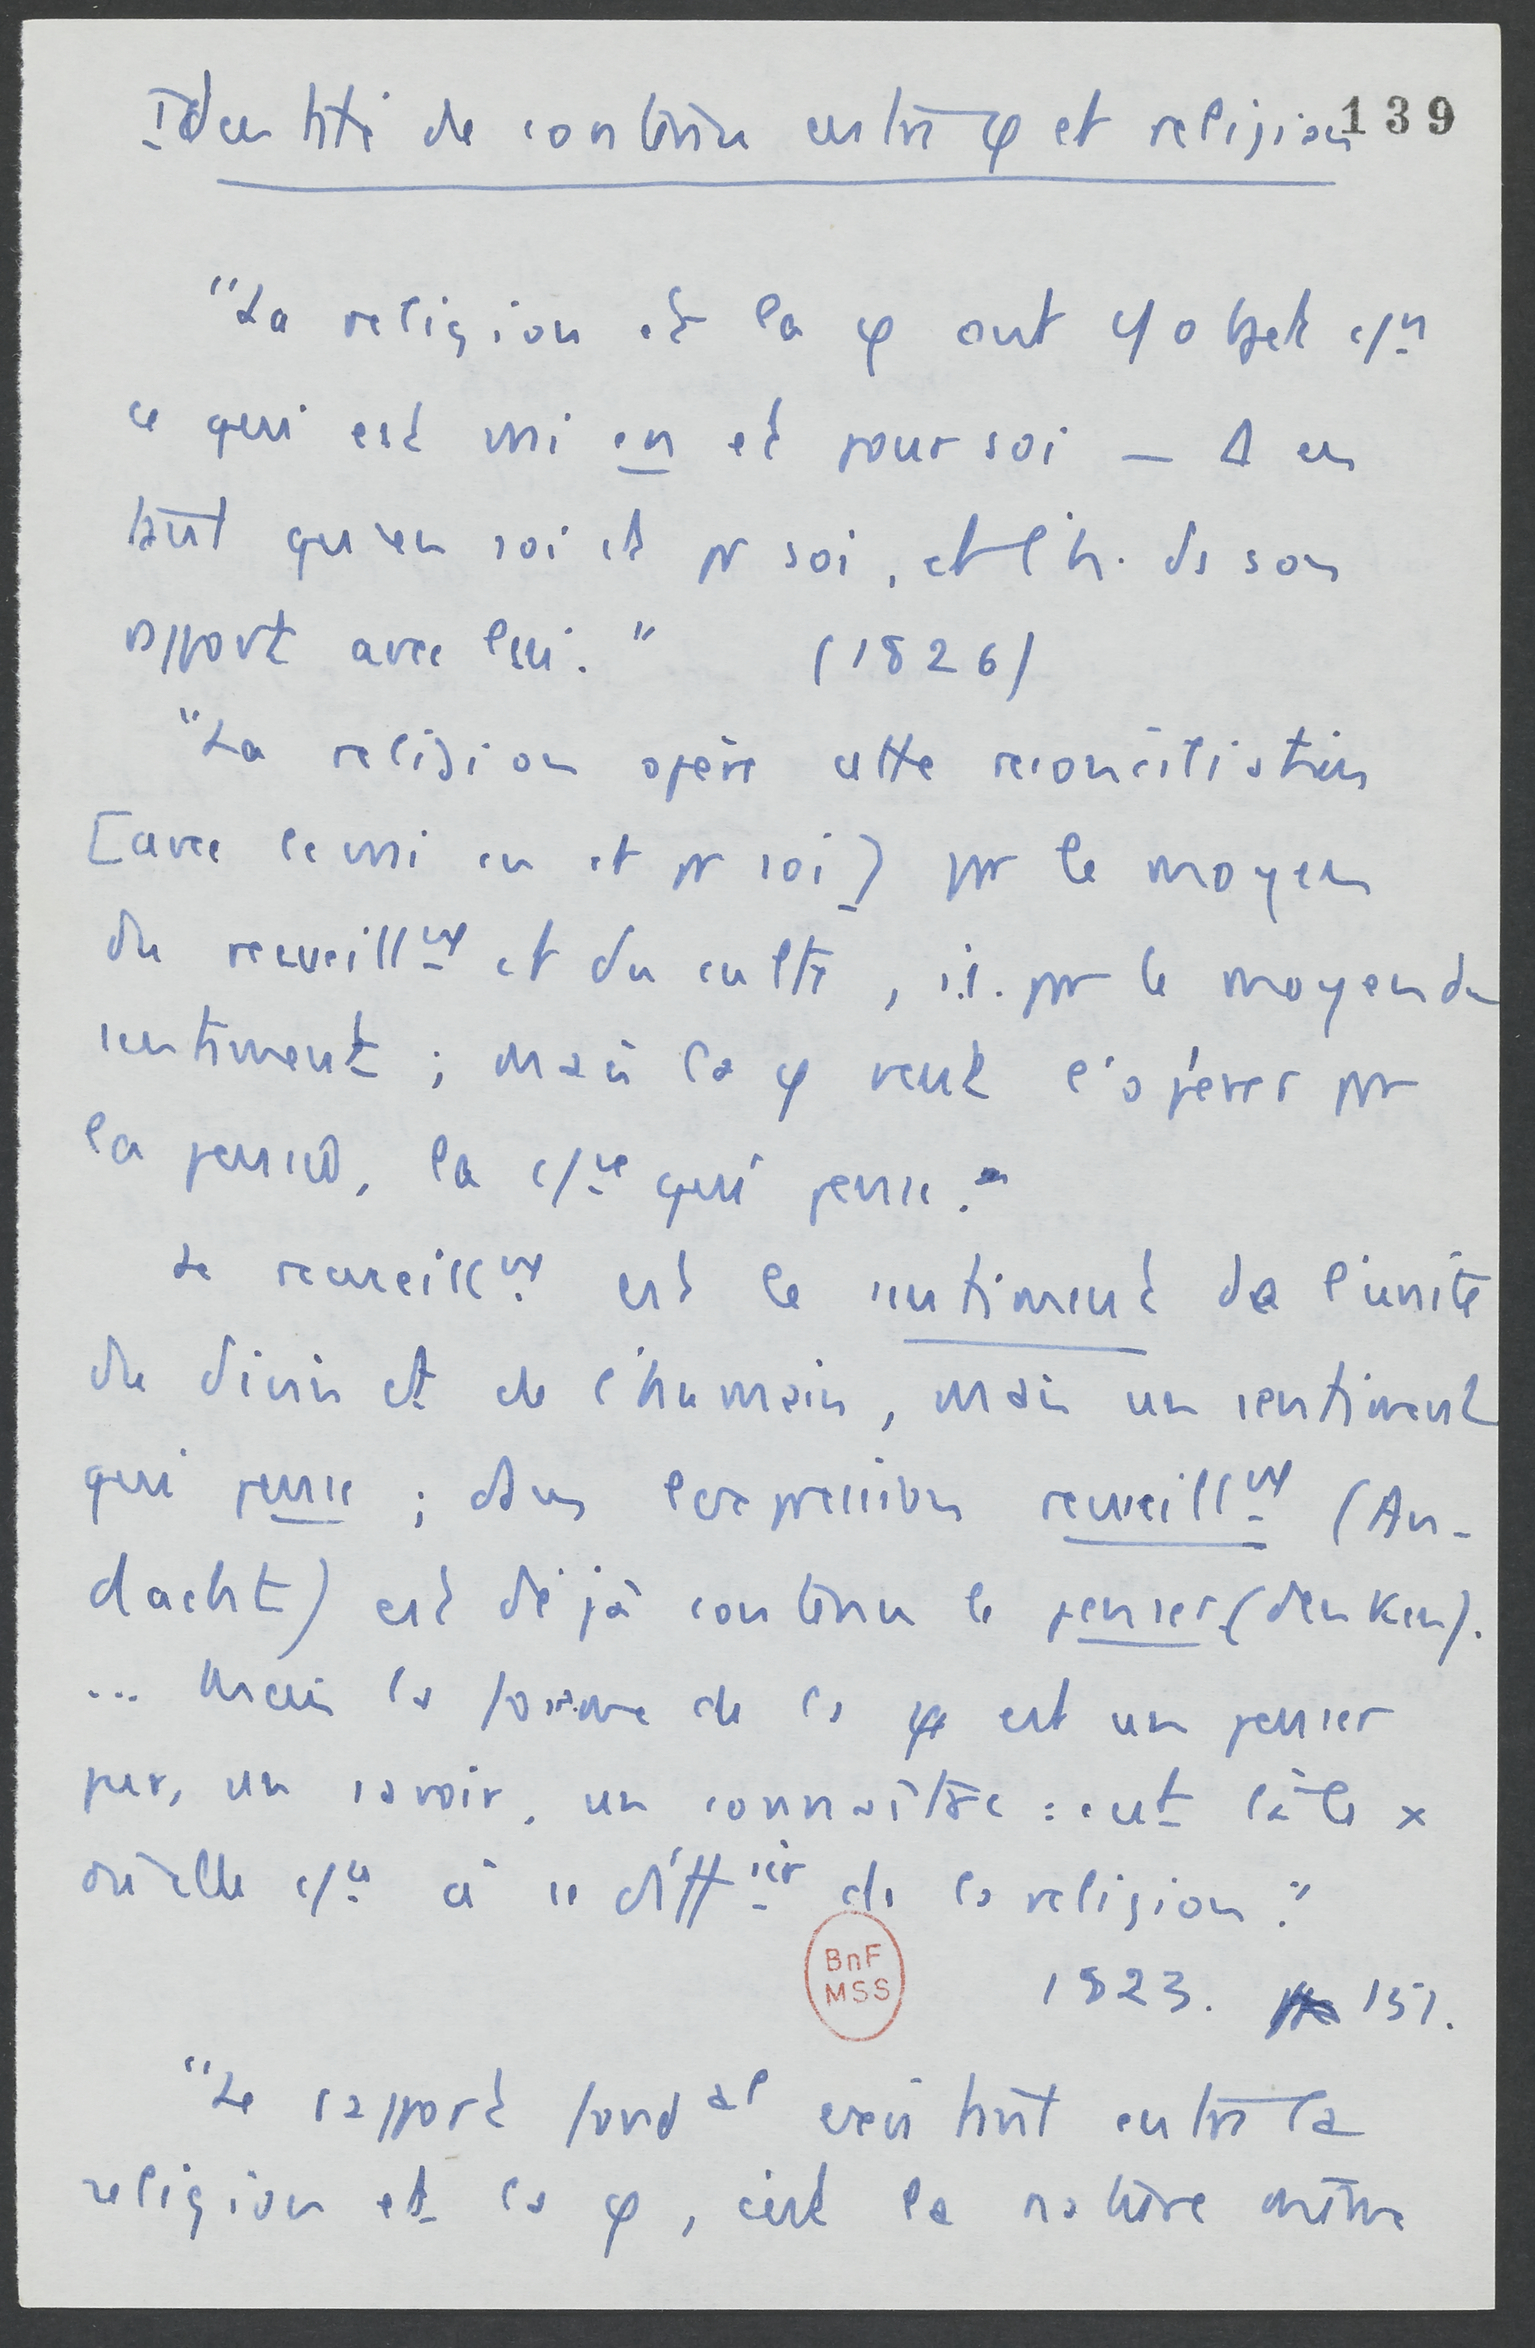 Identité de contenu entre φ et religion
139
"La religion et la φ ont c/ objet c/un
ce qui est vrai en et pour soi — Δ en
tant qu'en soi et pr soi, et l'h. ds son
rapport avec lui." (1826)
"La religion opère cette réconciliation
[avec le vrai en et pr soi] par le moyen
du recueillmt et du culte, i.e. par le moyen du
sentiment ; mais la φ veut l'opérer par
la pensée, la c/ce qui pense."
Le recueillmt est le sentiment de l'unité
du divin et de l'humain, mais un sentiment
qui pense ; dans l'expression recueillmt (An-
dacht) est déjà contenu le penser (denken).
... Mais la forme de la φ est un penser
pur, un savoir, un connaître : c'est là le x
où elle c/ce à se différcier de la religion."
BnF
MSS
1823. 151.
"Le rapport fondal existant entre la
religion et la φ, c'est la nature même